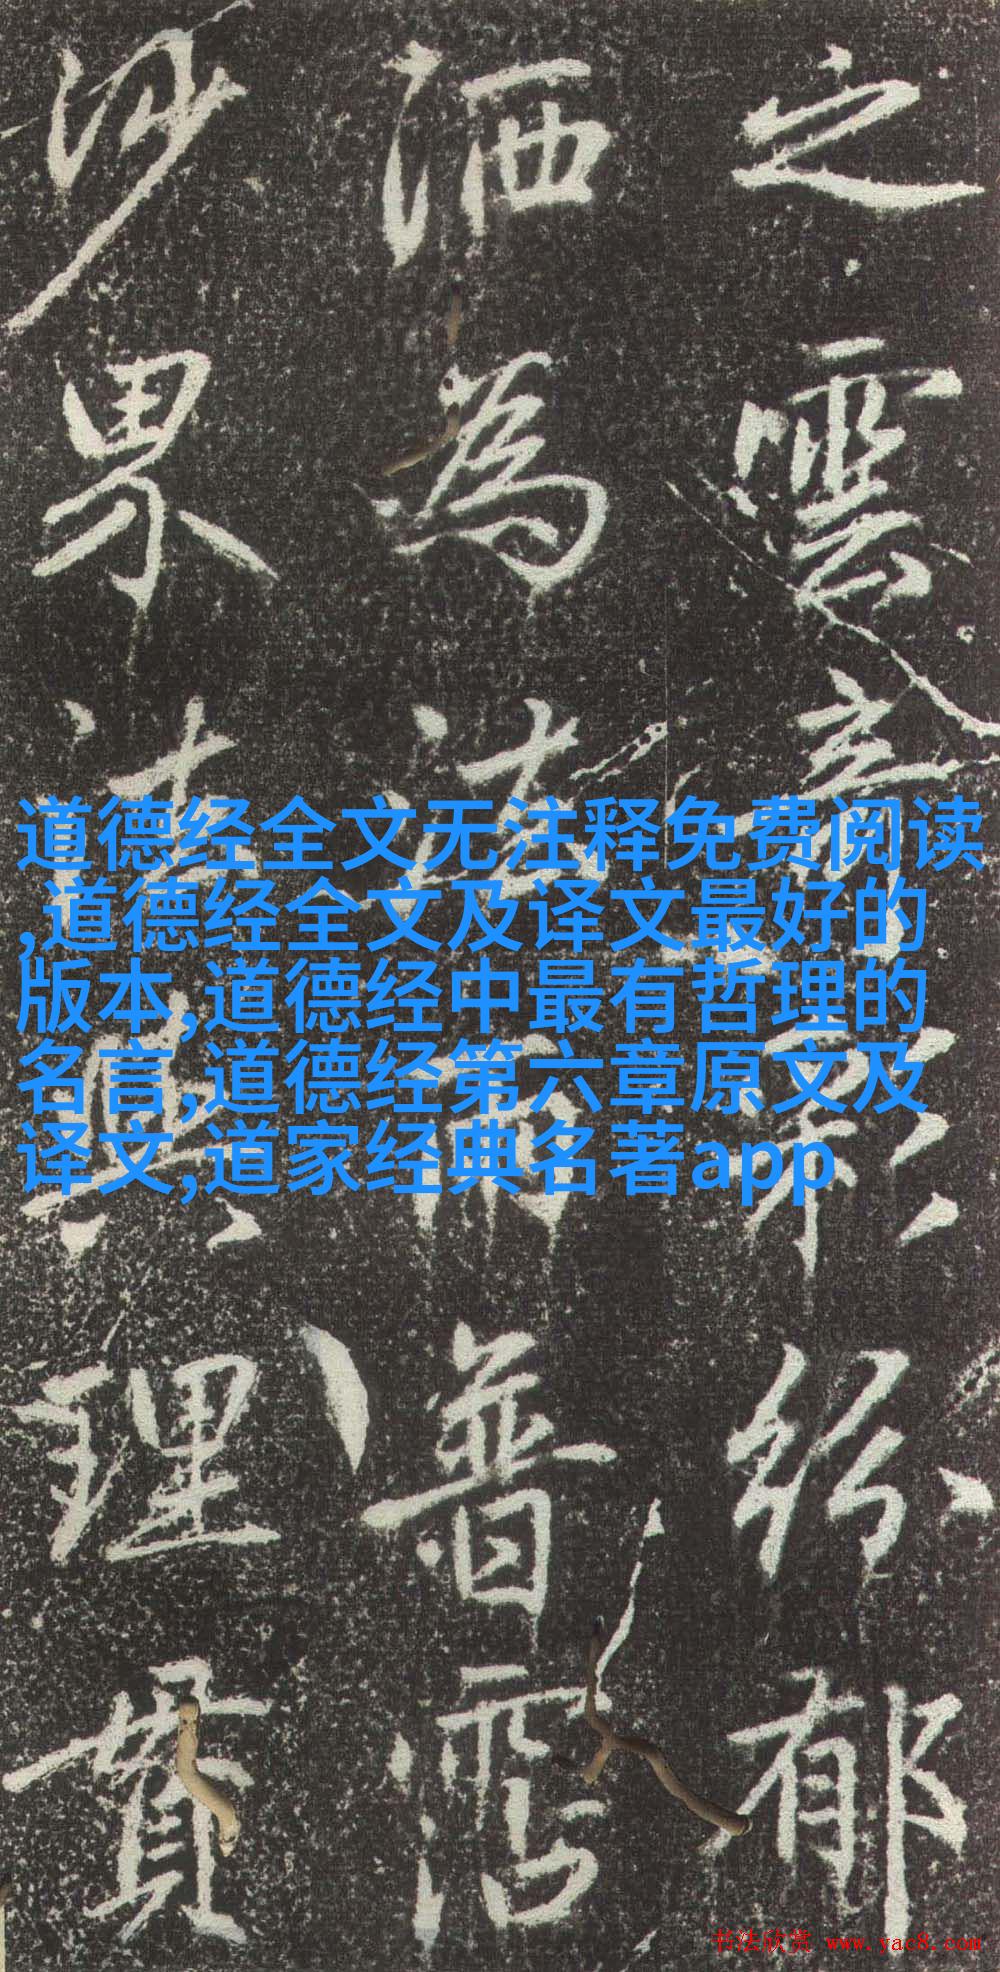 之雲紛郁
洒為法雨普霑
沙界法與理貫
道德经全文无注释免费阅读
,道德经全文及译文最好的
版本,道德经中最有哲理的
名言,道德经第六章原文及
译文,道家经典名著app
书法欣赏 www.yac8.com